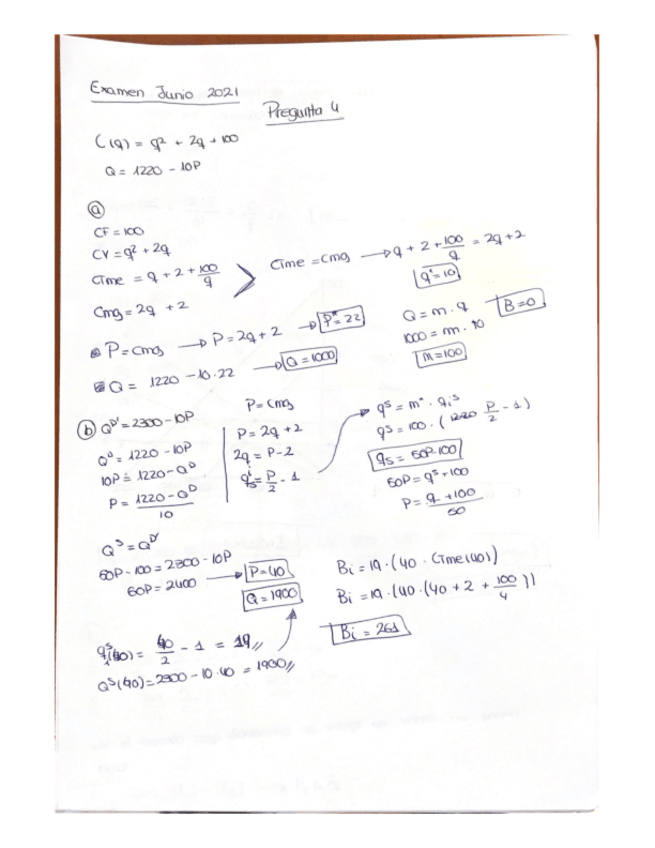 Examen Junio 2021
Pregunta 4
C(q) = q² + 2q + 100
Q = 1220 - 10P
a
CF = 100
CV = q² + 2q
CTme = q + 2 + 100/q
Cmg = 2q + 2
CTme = Cmg → q + 2 + 100/q = 2q + 2
q* = 10
P = Cmg → P = 2q + 2 → P* = 22
Q = 1220 - 10·22 → Q = 1000
Q = m · q
B = 0
1000 = m · 10
m = 100
b
Q^D' = 2300 - 10P
Q^D = 1220 - 10P
10P = 1220 - Q^D
P = (1220 - Q^D)/10
P = Cmg
P = 2q + 2
2q = P - 2
q_s^i = P/2 - 1
q^s = m* · q_i^s
q^s = 100 · ( P/2 - 1)
q_s = 50P-100
50P = q^s + 100
P = (q + 100)/50
Q^S = Q^D'
50P - 100 = 2300 - 10P
60P = 2400 → P = 40
Q = 1900
q_i^s(40) = 40/2 - 1 = 19
Q^S(40) = 2300 - 10·40 = 1900
Bi = 19 · (40 · CTme(40))
Bi = 19 · (40 · (40 + 2 + 100/4))
Bi = 261